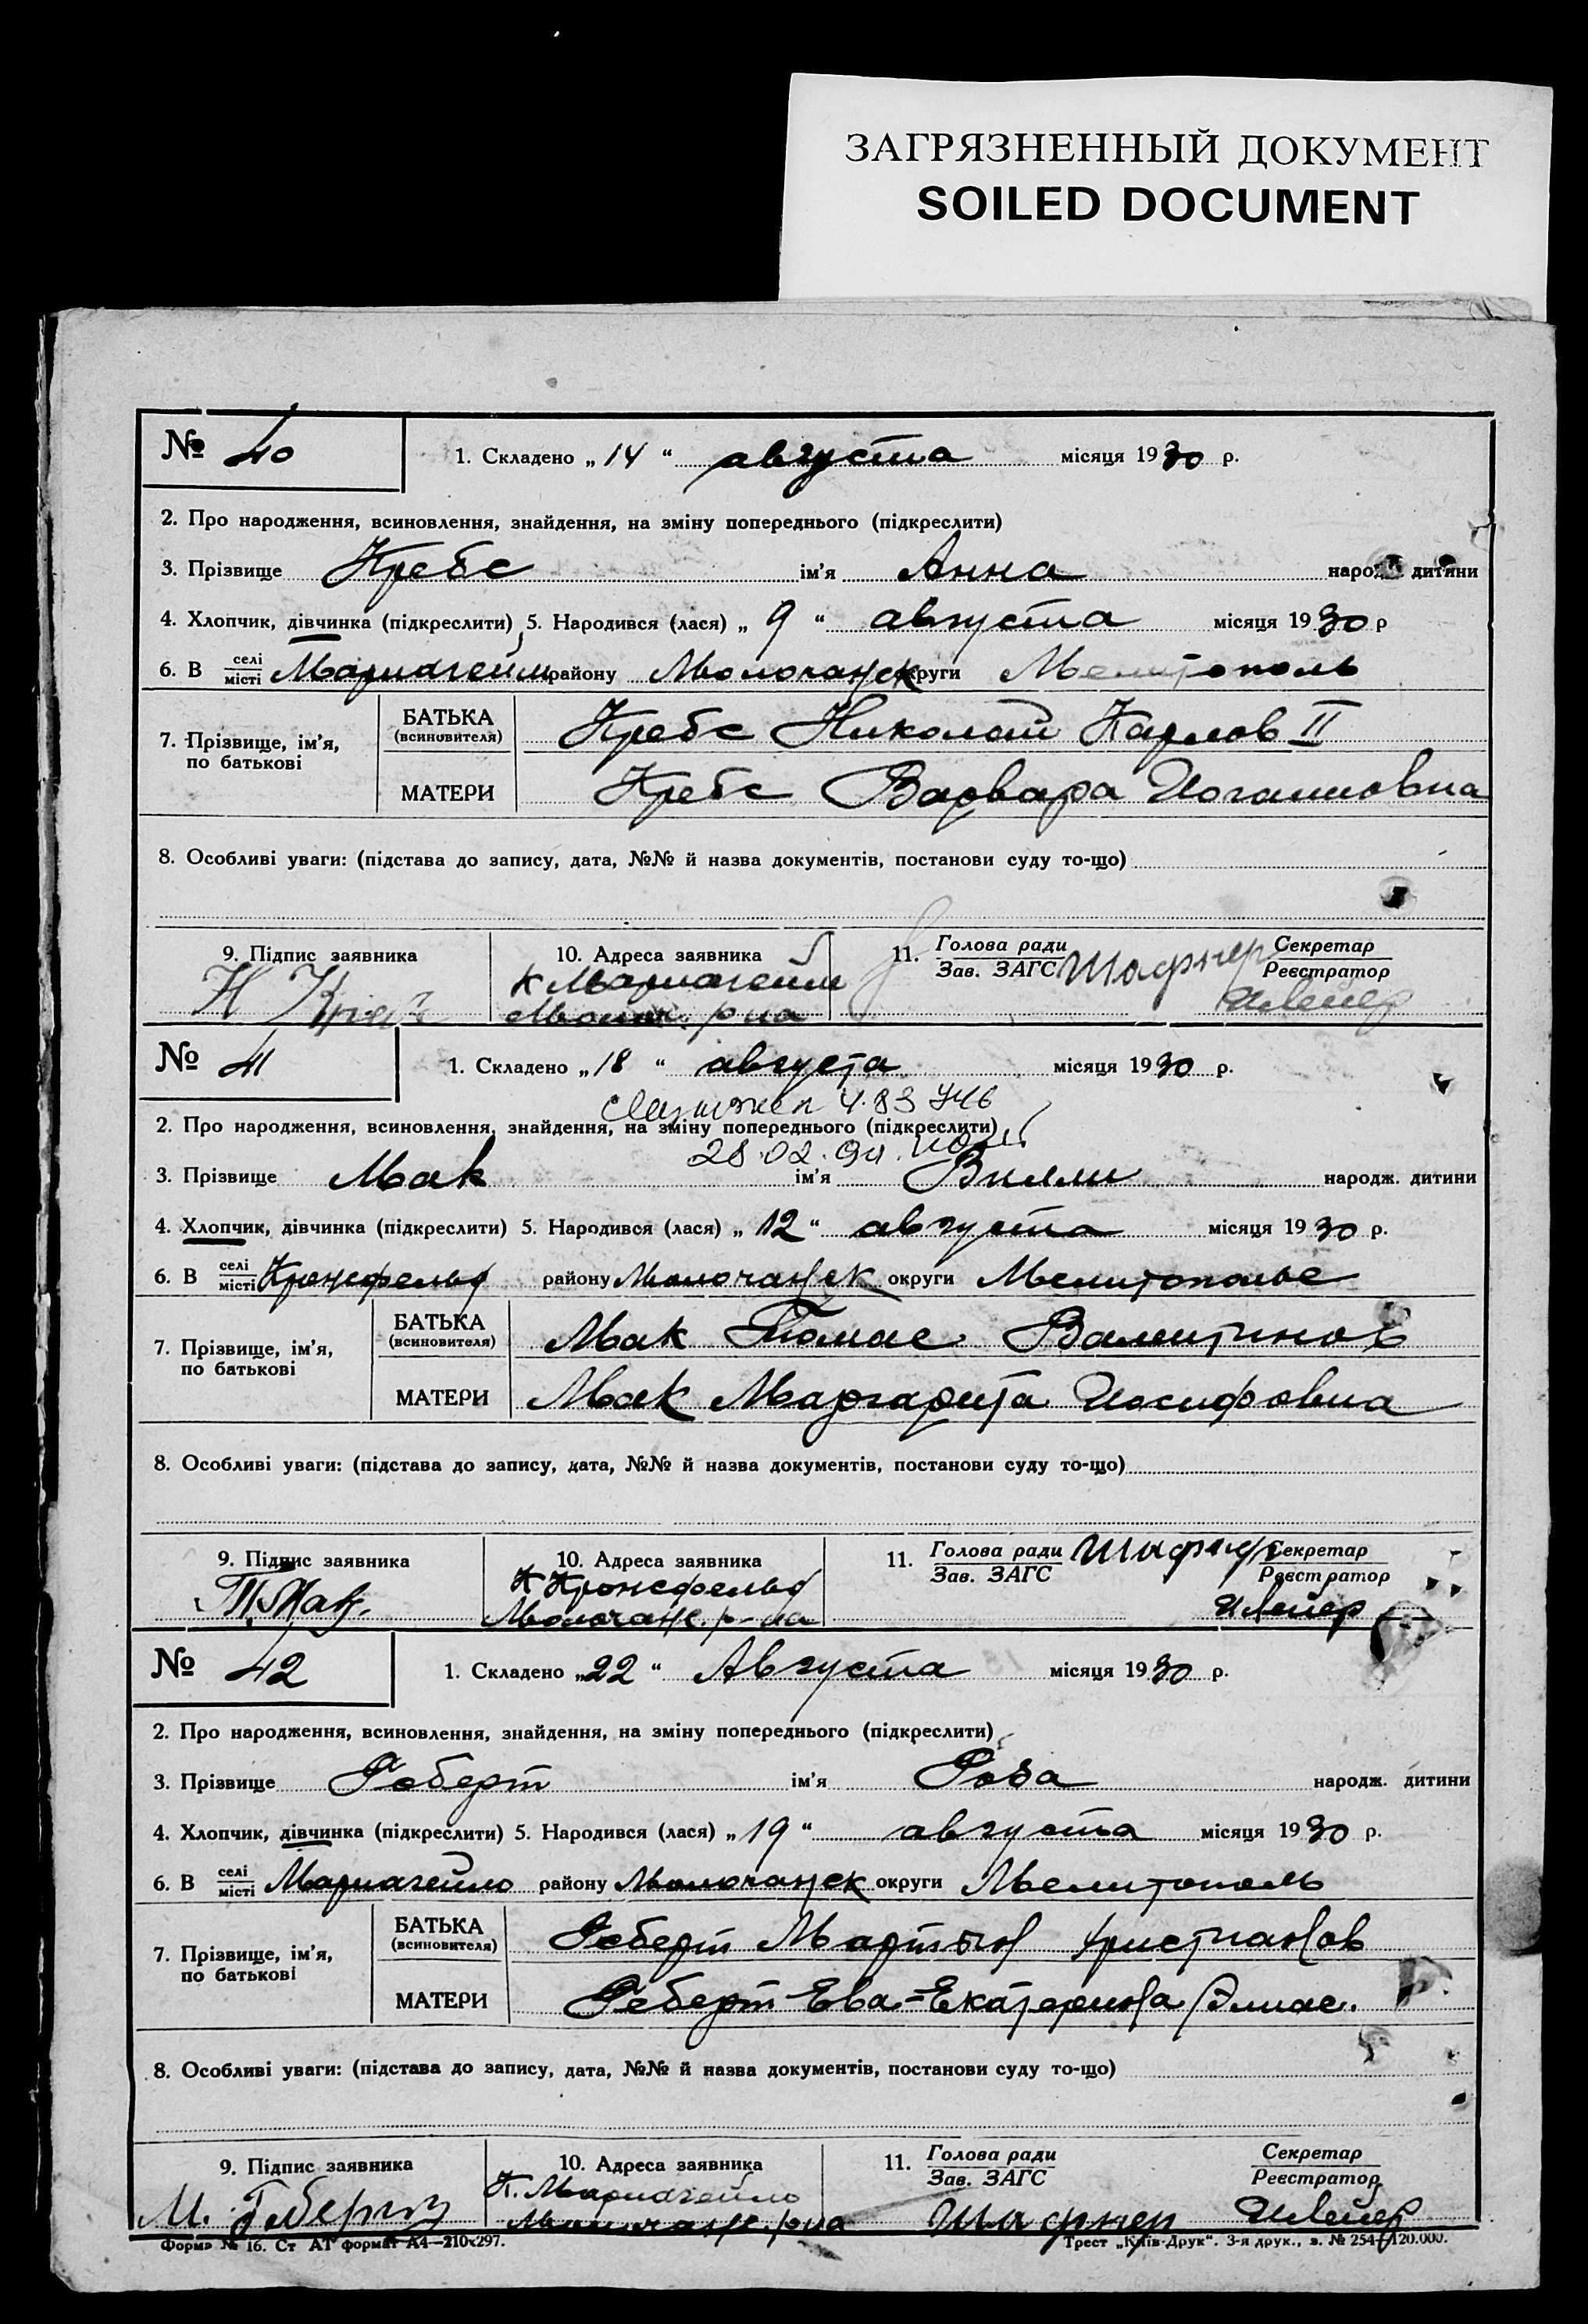 ЗАГРЯЗНЕННЫЙ ДОКУМЕНТ
SOILED DOCUMENT
№ 40
1. Складено „ 14 “ августа місяця 1930 р.
2. Про народження, всиновлення, знайдення, на зміну попереднього (підкреслити)
3. Прізвище Кребс ім'я Анна народж. дитини
4. Хлопчик, дівчинка (підкреслити) 5. Народився (лася) „ 9 “ августа місяця 1930 р
6. В селі місті Мариагейм району Молочанск округи Мелитополь
7. Прізвище, ім'я, по батькові
БАТЬКА (всиновителя) Кребс Николай Карлов II
МАТЕРИ Кребс Варвара Иоганновна
8. Особливі уваги: (підстава до запису, дата, №№ й назва документів, постанови суду то-що)
9. Підпис заявника
10. Адреса заявника
к Мариагейм
Молоч. р-на
11. Голова ради Зав. ЗАГС Шафнер
Секретар Реєстратор
№ 41
1. Складено „ 18 “ августа місяця 1930 р.
2. Про народження, всиновлення, знайдення, на зміну попереднього (підкреслити)
28.02.94
3. Прізвище Мак ім'я Вилли народж. дитини
4. Хлопчик, дівчинка (підкреслити) 5. Народився (лася) „ 12 “ августа місяця 1930 р.
6. В селі місті Кронсфельд району Молочанск округи Мелитополье
7. Прізвище, ім'я, по батькові
БАТЬКА (всиновителя) Мак Томас Валентинов
МАТЕРИ Мак Маргарита Иосифовна
8. Особливі уваги: (підстава до запису, дата, №№ й назва документів, постанови суду то-що)
9. Підпис заявника
10. Адреса заявника
К Кронсфельд
Молочанс. р-на
11. Голова ради Зав. ЗАГС Шафнер
Секретар Реєстратор
№ 42
1. Складено „ 22 “ Августа місяця 1930 р.
2. Про народження, всиновлення, знайдення, на зміну попереднього (підкреслити)
3. Прізвище Роберт ім'я Роза народж. дитини
4. Хлопчик, дівчинка (підкреслити) 5. Народився (лася) „ 19 “ августа місяця 1930 р.
6. В селі місті Мариагейм району Молочанск округи Мелитополь
7. Прізвище, ім'я, по батькові
БАТЬКА (всиновителя) Роберт Мартын Христианов
МАТЕРИ Роберт Ева-Екатерина
8. Особливі уваги: (підстава до запису, дата, №№ й назва документів, постанови суду то-що)
9. Підпис заявника
10. Адреса заявника
К. Мариагейм
Молочанс. р-на
11. Голова ради Зав. ЗАГС Шафнер
Секретар Реєстратор
Форма № 16. Ст АТ формат А4—210x297.
Трест „Київ-Друк“. 3-я друк., з. № 254—120.000.